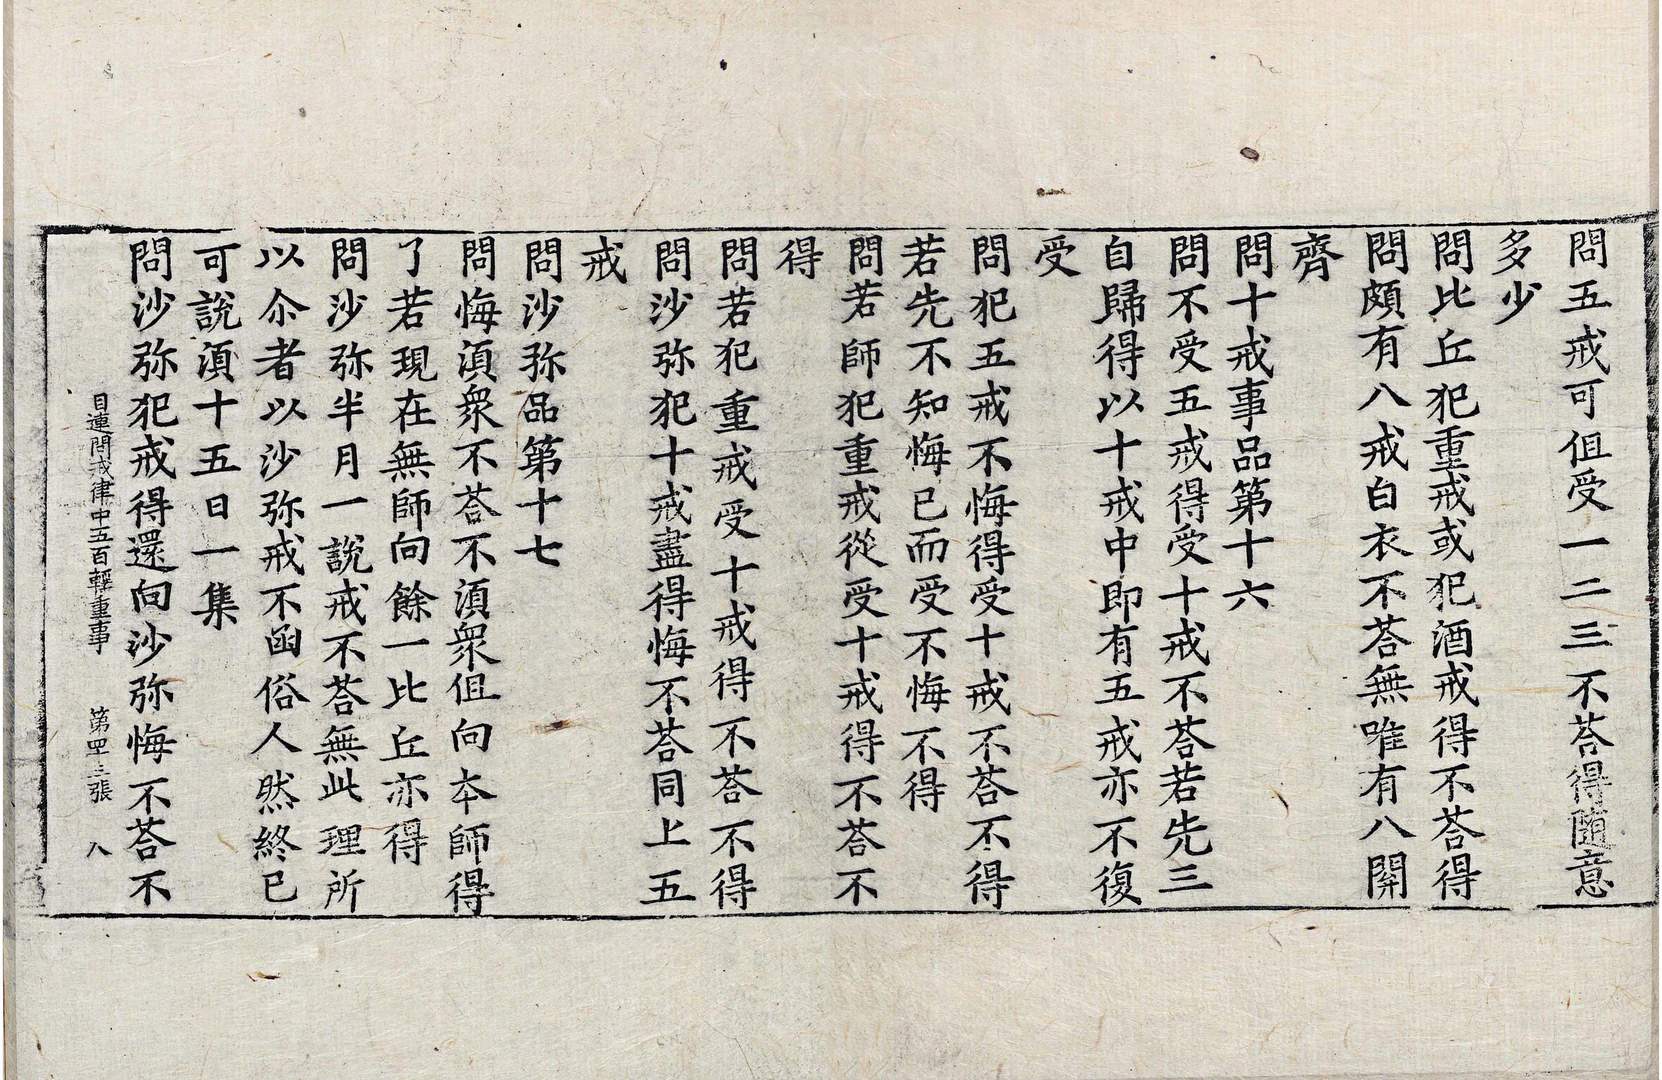 問五戒可伹受一二三不荅得隨意
多少
問比丘犯重戒或犯酒戒得不荅得
問頗有八戒白衣不荅無唯有八關
齊
問十戒事品第十六
問不受五戒得受十戒不荅若先三
自歸得以十戒中即有五戒亦不復
受
問犯五戒不悔得受十戒不荅不得
若先不知悔已而受不悔不得
問若師犯重戒從受十戒得不荅不
得
問若犯重戒受十戒得不荅不得
問沙弥犯十戒盡得悔不荅同上五
戒
問沙弥品第十七
問悔湏衆不荅不湏衆伹向本師得
了若現在無師向餘一比丘亦得
問沙弥半月一說戒不荅無此理所
以尒者以沙弥戒不函俗人然終已
可說湏十五日一集
問沙弥犯戒得還向沙弥悔不荅不
目連問戒律中五百輕重事 第四三張 八